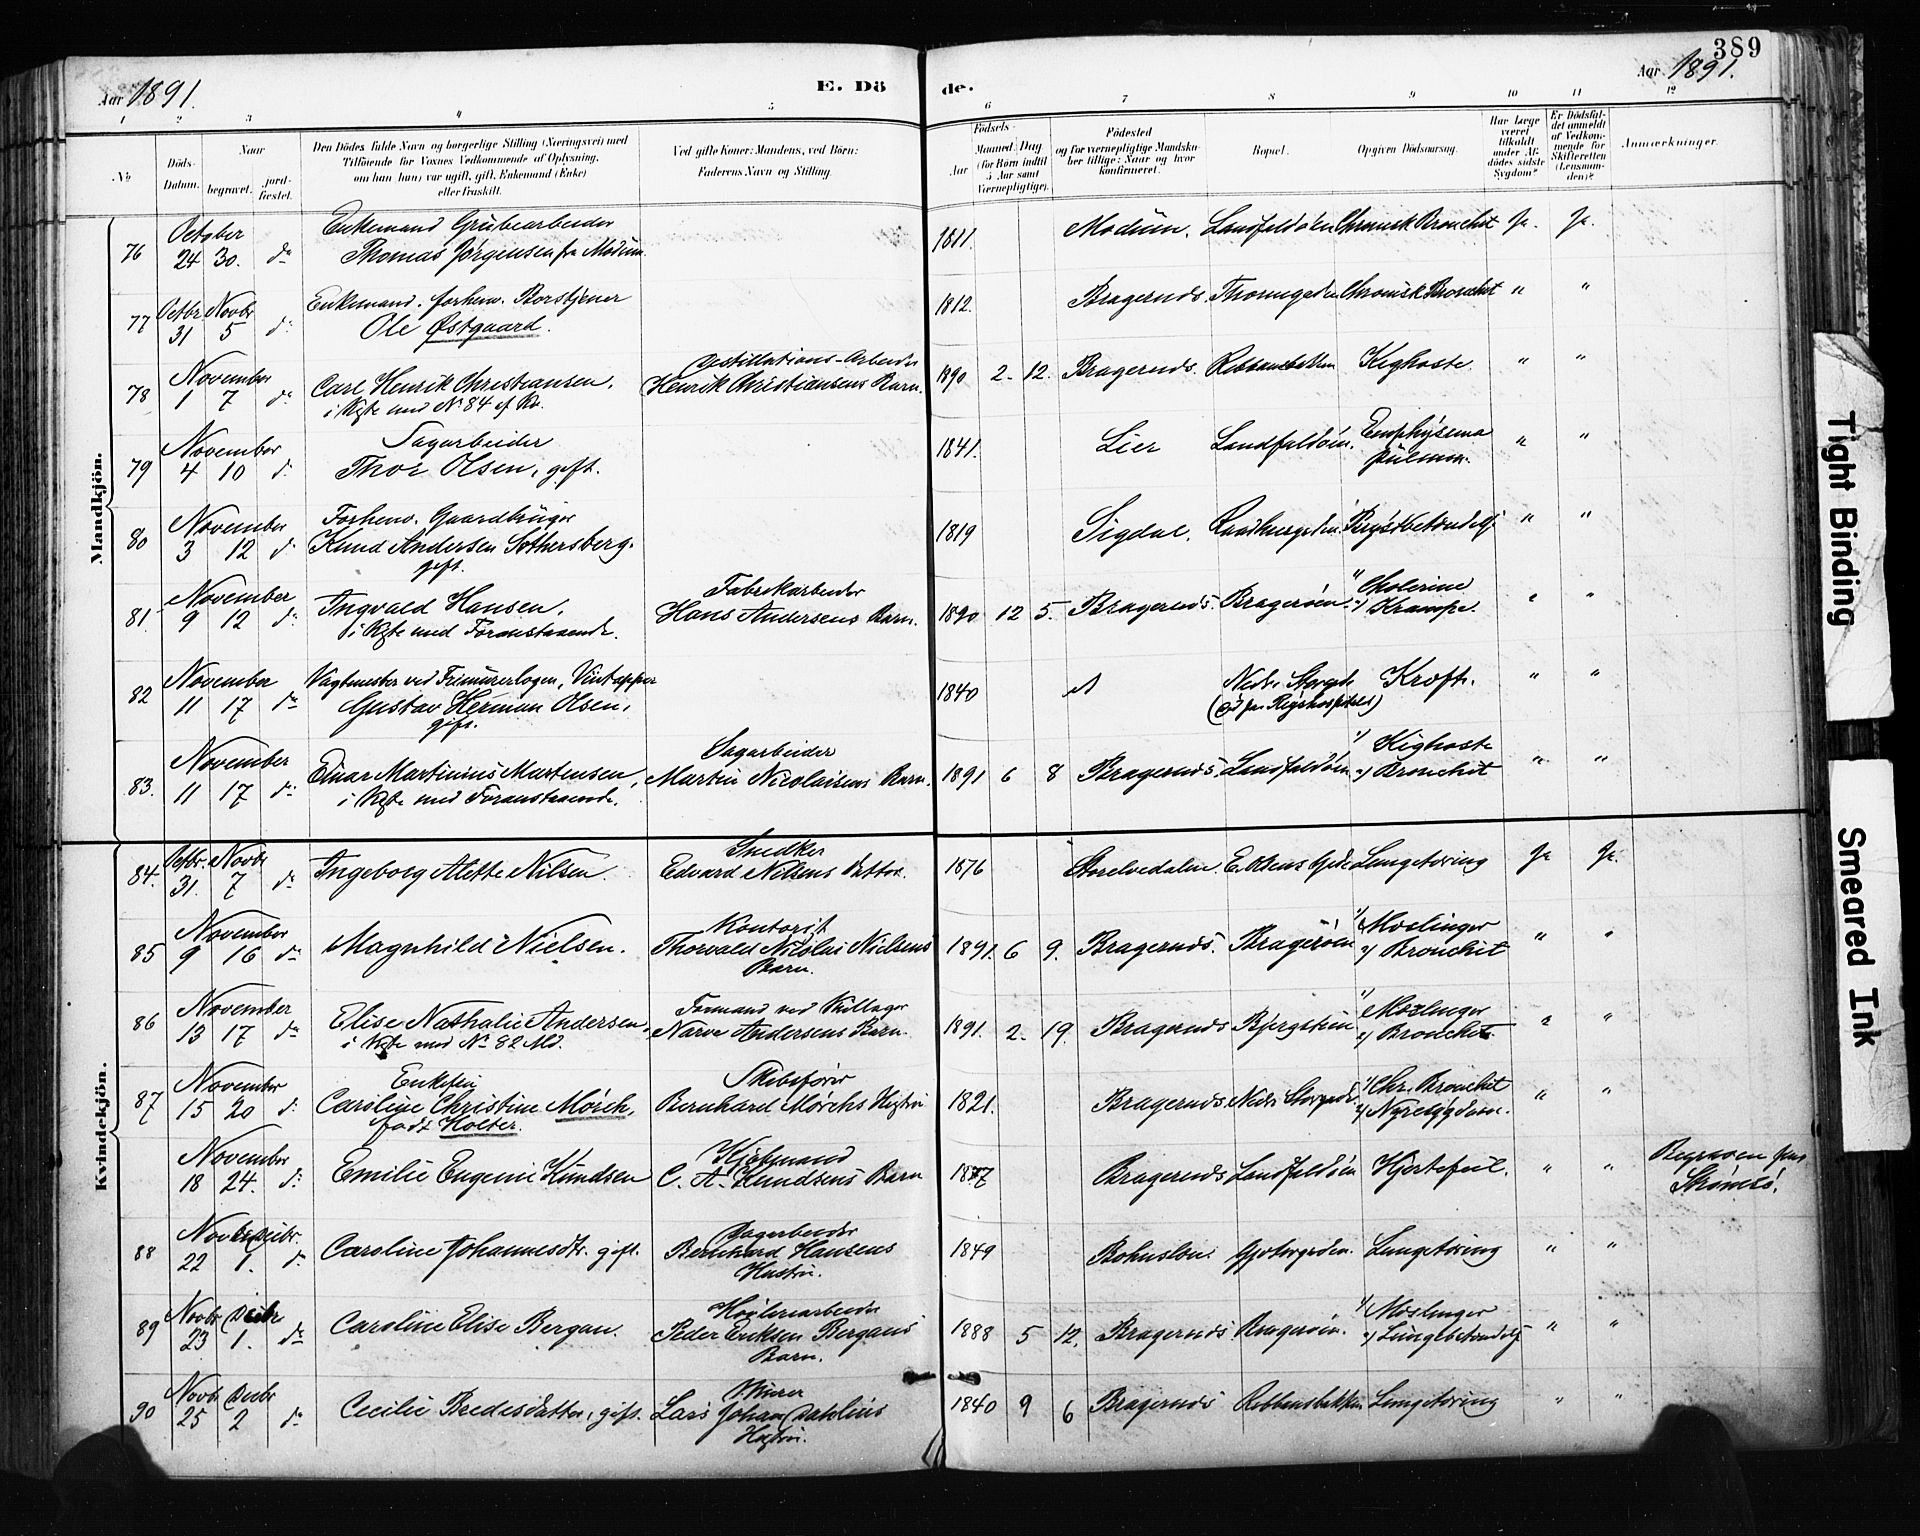 389
Aar 1891.
E. Dö
de.
Aar 1891.
1 2 3 4 5 6 7 8 9 10 11 12
No
Döds-Datum.
Naar
begravet.
jord-fæstet.
Den Dödes fulde Navn og borgerlige Stilling (Næringsvei) med
Tilföiende for Voxnes Vedkommende af Oplysning,
om han (hun) var ugift, gift, Enkemand (Enke)
eller fraskilt.
Ved gifte Koner: Mandens, ved Börn:
Faderens Navn og Stilling.
Födsels-
Aar
Maaned Dag
(for Börn indtil
5 Aar samt
Værnepligtige).
Födested
og for værnepligtige Mandska-
ber tillige: Naar og hvor
konfirmeret.
Bopæl.
Opgiven Dödsaarsag.
Har Læge
været
tilkaldt
under Af-
dödes sidste
Sygdom?
Er Dödsfal-
det anmeldt
af Vedkom-
mende for
Skifteretten
(Lensman-
den)?
Anmærkninger.
Mandkjön.
76 October 24 30. do Enkemand Grubearbeider
Thomas Jørgensen fra Modum. 1811. Modum. Landfaldøen Chronisk Bronchit Ja. Ja.
77 Octbr. 31 Novbr 5 do Enkemand. forhenv.
Ole Østgaard. 1812. Bragernæs. Thornegaden Chronisk Bronchit " "
78 November 1 7 do Carl Henrik Christiansen,
i Kiste med No 84 af Kv.
Destillations-Arbeider
Henrik Christiansens Barn. 1890 2 12. Bragernæs. Ribbansbakken Kighoste. " "
79 November 4 10 do Sagarbeider
Thor Olsen, gift. 1841. Lier Landfaldøen. Emphysema
pulmon. " "
80 November 3 12 do Forhenv. Gaardbruger
Knud Andersen Sothersberg.
gift. 1819 Sigdal. Raadhusgaden Brystbetændelse " "
81 November 9 12 do Ingvald Hansen,
i Kiste med Foranstaaende.
Fabrikarbeider
Hans Andersens Barn. 1890 12 5. Bragernæs. Bragerøen 1) Cholerine
2) Krampe. " "
82 November 11 17 do Vagtmester ved Frimurerlogen, Vintapper
Gustav Herman Olsen,
gift. 1840 Nedre Storgade
(død paa Rigshospitalet) Kræft. " "
83. November 11 17 do Einar Martinius Martensen,
i Kiste med Foranstaaende.
Sagarbeider
Martin Nicolaisens Barn. 1891 6 8 Bragernæs. Landfaldøen 1) Kighoste
2) Bronchit " "
Kvindekjön.
84. Octbr. 31. Novbr 7 do Ingeborg Mette Nilsen.
Snedker
Edvard Nilsens Datter. 1876 Storelvedalen. Lungetæring Ja Ja.
85 November 9 16 do Magnhild Nielsen.
Kontorist
Thorvald Nicolai Nielsens
Barn. 1891. 6 9. Bragernæs. Bragerøen 1) Mæslinger
2) Bronchit " "
86 November 13 17 do Elise Nathalie Andersen,
i Kiste med No 82 Md.
Formand ved
Narve Andersens Barn. 1891. 2 19. Bragernæs 1) Mæslinger
2) Bronchit. " "
87 November 15 20 do Enkefru
Caroline Christine Mørch,
født Holter.
Skibsfører
Bernhard Mørchs Hustru 1821. Bragernæs Nedre Storgade 1) Chr. Bronchit
2) Nyresygdom. " "
November 18 24. do Emilie Eugenie Knudsen
Kjøbmand
C. A. Knudsens Barn 1877 Bragernæs Landfaldøen Hjertefeil. " " Begraven paa
Strømsø.
88 Novbr. Decbr. 22 1. do Caroline Johannesdtr. gift.
Dagarbeider
Bernhard Hansens
Hustru. 1849 Bohuslen. Lungetæring " "
89 Novbr Decbr 23 1. do Caroline Elise Bergan.
Høvleriarbeider
Peder Eriksen Bergans
Barn. 1888 5 12. Bragernæs Bragerøen. 1) Mæslinger
2) Lungebetændelse " "
90 Novbr Decbr 25 2 do Cecilie Bredesdatter, gift.
Murer
Lars Johan Dahlins
Hustru. 1840 9 6 Bragernæs Ribbansbakken Lungetæring " "
Tight Binding
Smeared Ink